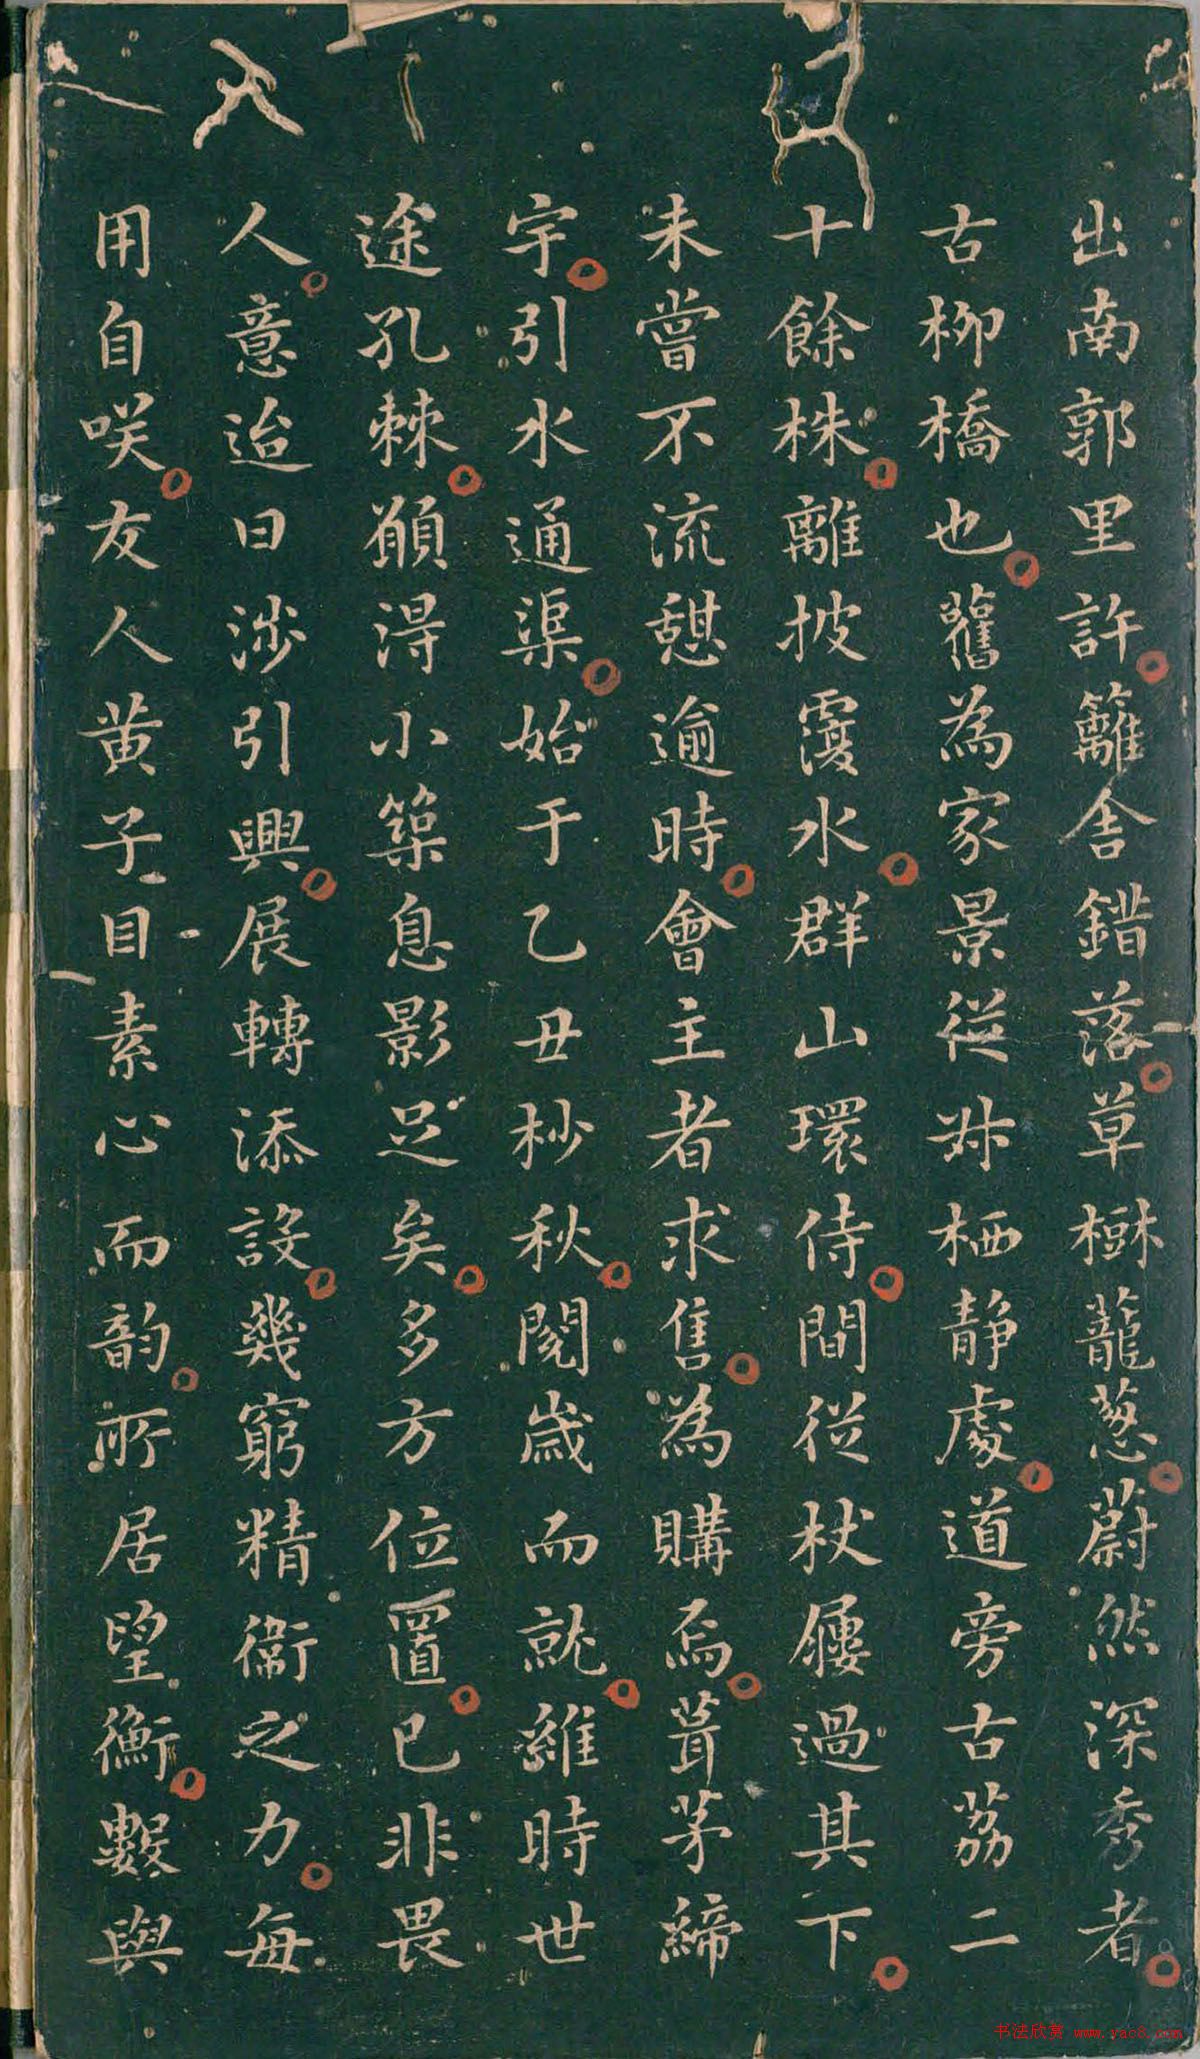 出南郭里許籬舍錯落草樹蘢葱蔚然深秀者
古柳橋也舊為家景從叔栖靜處道旁古荔二
十餘株離披覆水群山環侍間從杖屨過其下
未嘗不流憩逾時會主者求售為購焉葺茅締
宇引水通渠始于乙丑杪秋閱歲而就維時世
途孔棘願得小築息影足矣多方位置已非畏
人意迨日涉引興展轉添設幾窮精衞之力每
用自咲友人黃子目素心而韵所居望衡數與
书法欣赏 www.yac8.com